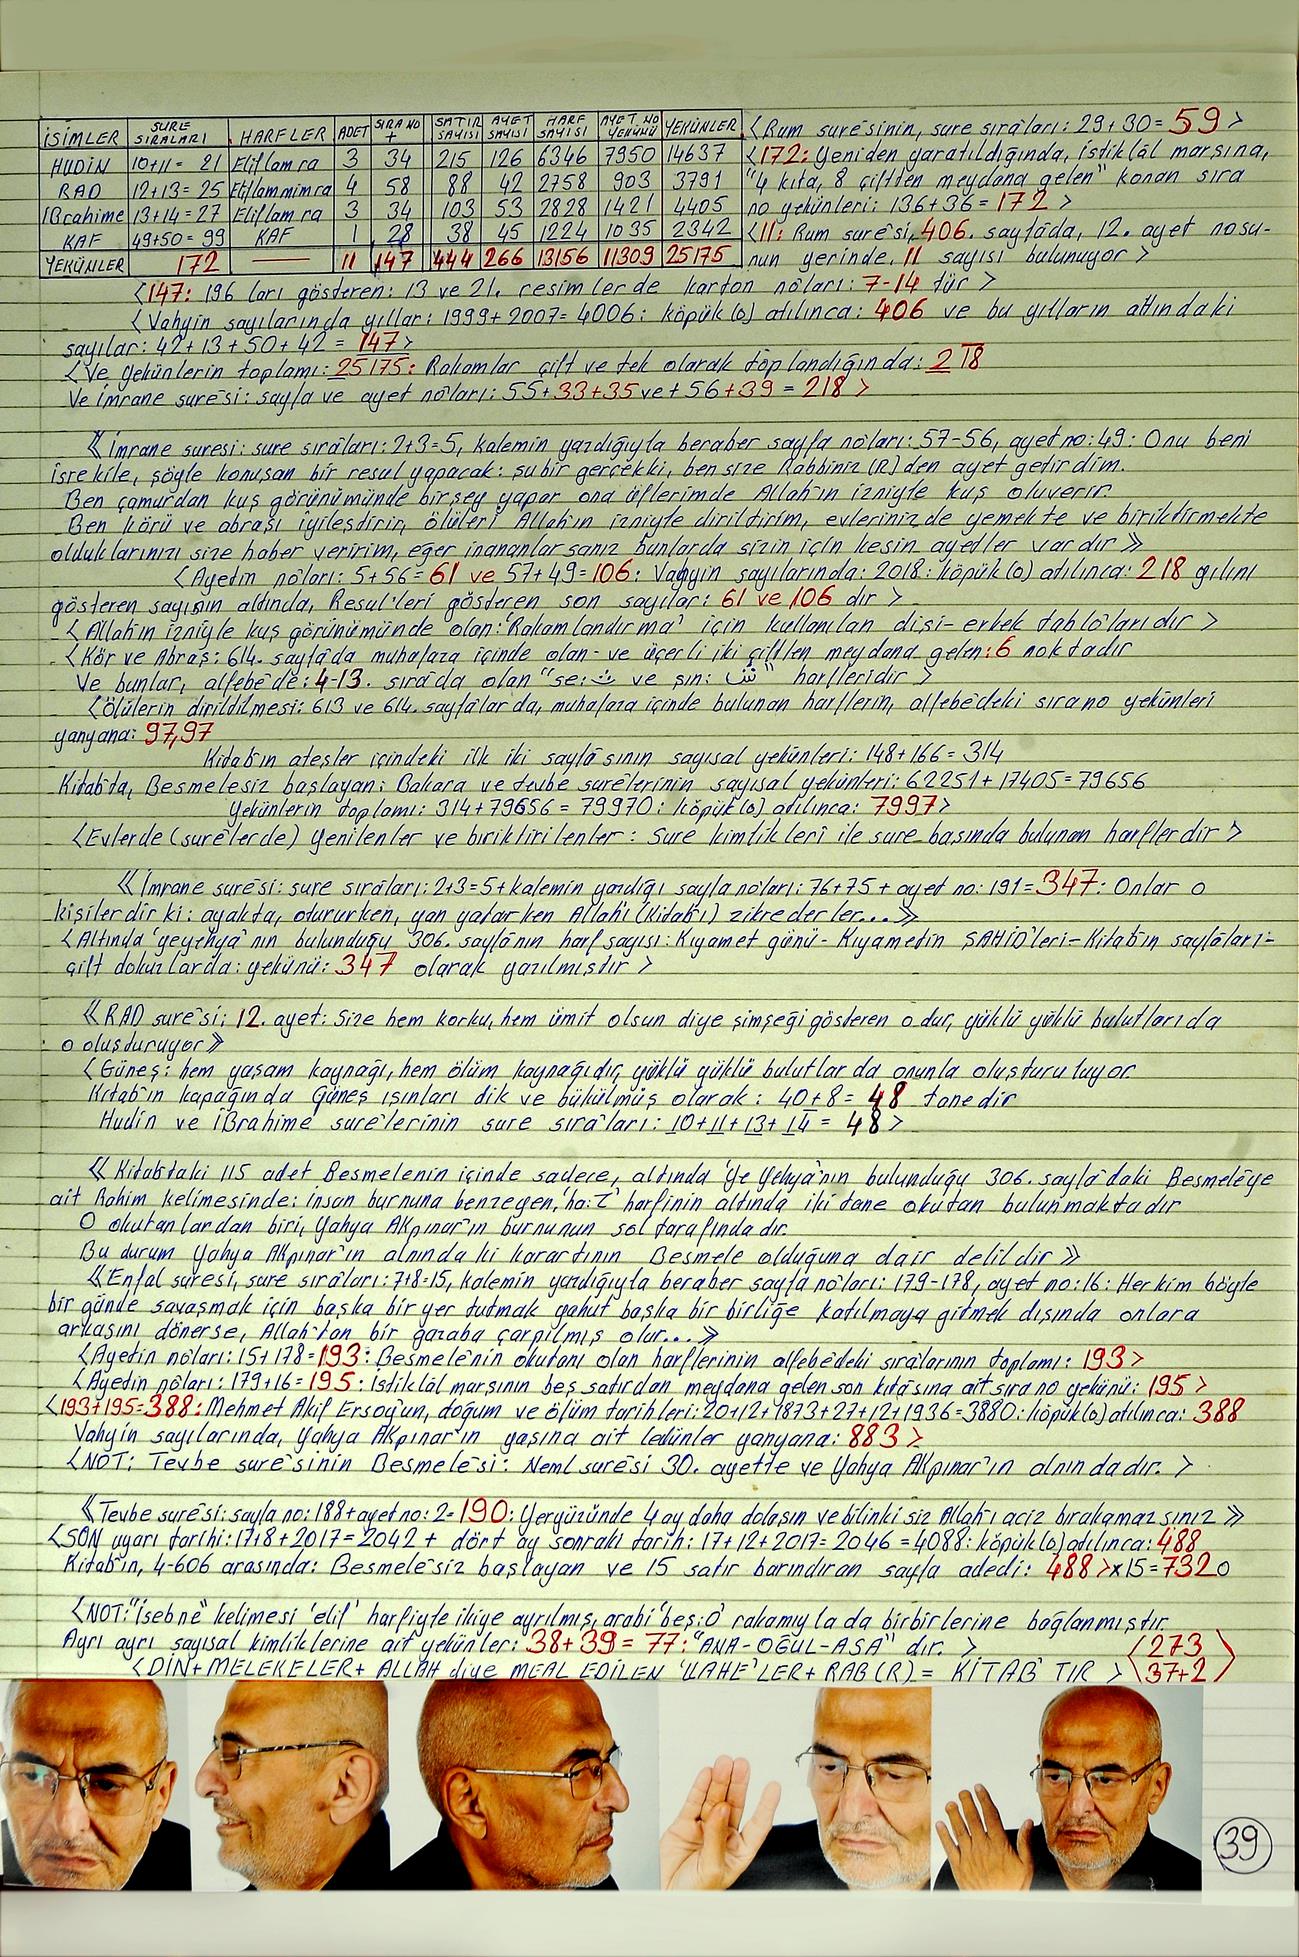 İSİMLER | SURE SIRALARI | HARFLER | ADET | SIRA NO + | SATIR SAYISI | AYET SAYISI | HARF SAYISI | AYET. NO YEKÜNÜ | YEKÜNLER
HUDİN | 10+11= 21 | Elif lam ra | 3 | 34 | 215 | 126 | 6346 | 7950 | 14637
RAD | 12+13= 25 | Elif lam mim ra | 4 | 58 | 88 | 42 | 2758 | 903 | 3791
İBrahime | 13+14= 27 | Elif lam ra | 3 | 34 | 103 | 53 | 2828 | 1421 | 4405
KAF | 49+50= 99 | KAF | 1 | 28 | 38 | 45 | 1224 | 1035 | 2342
YEKÜNLER | 172 | — | 11 | 147 | 444 | 266 | 13156 | 11309 | 25175
<Rum suresinin, sure sıraları: 29+30= 59>
<172: Yeniden yaratıldığında, istiklâl marşına,
"4 kıta, 8 çiftten meydana gelen" konan sıra
no yekünleri: 136+36= 172>
<11: Rum suresi, 406. sayfada, 12. ayet nosu-
nun yerinde, 11 sayısı bulunuyor>
<147: 196 ları gösteren: 13 ve 21. resimlerde karton noları: 7-14 tür>
<Vahyin sayılarında yıllar: 1999+2007= 4006: köpük(0) atılınca: 406 ve bu yılların altındaki
sayılar: 42+13+50+42 = 147>
<Ve yekünlerin toplamı: 25175: Rakamlar çift ve tek olarak toplandığında: 218
Ve İmrane suresi: sayfa ve ayet noları: 55+33+35 ve +56+39 = 218>
《İmrane suresi: sure sıraları: 2+3=5, kalemin yazdığıyla beraber sayfa noları: 57-56, ayet no: 49: Onu beni
isre kile, şöyle konuşan bir resul yapacak: şu bir gerçekki, ben size Rabbiniz (R) den ayet getirdim.
Ben çamurdan kuş görünümünde birşey yapar ona üflerimde Allah'ın izniyle kuş oluverir.
Ben körü ve abraşı iyileştirir, ölüleri Allah'ın izniyle diriltirim, evlerinizde yemekte ve biriktirmekte
olduklarınızı size haber veririm, eğer inananlarsanız bunlarda sizin için kesin ayetler vardır》
<Ayetin noları: 5+56= 61 ve 57+49= 106: Vahyin sayılarında: 2018: köpük(0) atılınca: 218 yılını
gösteren sayının altında, Resul'leri gösteren son sayılar: 61 ve 106 dır>
<Allah'ın izniyle kuş görünümünde olan: 'Rakamlandırma' için kullanılan dişi-erkek tablolarıdır>
<Kör ve Abraş: 614. sayfada muhafaza içinde olan- ve üçerli iki çiftten meydana gelen: 6 noktadır
Ve bunlar, alfebede: 4-13. sırada olan "se: ث ve şın: ش" harfleridir>
<Ölülerin dirildilmesi: 613 ve 614. sayfalarda, muhafaza içinde bulunan harflerin, alfebedeki sıra no yekünleri
yanyana: 97,97
Kitab'ın ateşler içindeki ilk iki sayfasının sayısal yekünleri: 148+166= 314
Kitab'ta, Besmelesiz başlayan: Bakara ve tevbe surelerinin sayısal yekünleri: 62251+17405=79656
Yekünlerin toplamı: 314+79656= 79970: köpük(0) atılınca: 7997>
<Evlerde (surelerde) Yenilenler ve biriktirilenler: Sure kimlikleri ile sure başında bulunan harflerdir>
《İmrane suresi: sure sıraları: 2+3=5+kalemin yazdığı sayfa noları: 76+75+ayet no: 191= 347: Onlar o
kişilerdir ki: ayakta, otururken, yan yatarken Allah'ı (Kitab'ı) zikrederler...》
<Altında 'yeyehya'nın bulunduğu 306. sayfanın harf sayısı: Kıyamet günü- Kıyametin ŞAHİD'leri- Kitab'ın sayfaları=
çift dokuzlarda: yekünü: 347 olarak yazılmıştır>
《RAD suresi; 12. ayet: Size hem korku, hem ümit olsun diye şimşeği gösteren odur, yüklü yüklü bulutları da
o oluşturuyor》
<Güneş: hem yaşam kaynağı, hem ölüm kaynağıdır, yüklü yüklü bulutlar da onunla oluşturuluyor.
Kitab'ın kapağında Güneş ışınları dik ve bükülmüş olarak: 40+8= 48 tanedir
Hudin ve İBrahime surelerinin sure sıraları: 10+11+13+14 = 48>
《Kitab'taki 115 adet Besmelenin içinde sadece, altında 'Ye Yehya'nın bulunduğu 306. sayfadaki Besmeleye
ait Rahim kelimesinde: insan burnuna benzeyen, 'ha: ح' harfinin altında iki tane okutan bulunmaktadır
O okutanlardan biri, Yahya AKpınar'ın burnunun sol tarafındadır.
Bu durum Yahya AKpınar'ın alnındaki karartının Besmele olduğuna dair delildir》
《Enfal suresi, sure sıraları: 7+8=15, kalemin yazdığıyla beraber sayfa noları: 179-178, ayet no: 16: Her kim böyle
bir günde savaşmak için başka bir yer tutmak yahut başka bir birliğe katılmaya gitmek dışında onlara
arkasını dönerse, Allah'tan bir gazaba çarpılmış olur...》
<Ayetin noları: 15+178= 193: Besmele'nin okutanı olan harflerinin alfebedeki sıralarının toplamı: 193>
<Ayetin noları: 179+16= 195: istiklâl marşının beş satırdan meydana gelen son kıtasına ait sıra no yekünü: 195>
<193+195=388: Mehmet Akif Ersoy'un, doğum ve ölüm tarihleri: 20+12+1873+27+12+1936=3880: köpük(0) atılınca: 388
Vahyin sayılarında, Yahya AKpınar'ın yaşına ait ledünler yanyana: 883>
<NOT: Tevbe suresinin Besmelesi: Neml suresi 30. ayette ve Yahya AKpınar'ın alnındadır.>
《Tevbe suresi: sayfa no: 188+ayet no: 2= 190: Yeryüzünde 4 ay daha dolaşın ve bilinki siz Allah'ı aciz bırakamazsınız》
<SON uyarı tarihi: 17+8+2017= 2042 + dört ay sonraki tarih: 17+12+2017= 2046 = 4088: köpük(0) atılınca: 488
Kitab'ın, 4-606 arasında: Besmelesiz başlayan ve 15 satır barındıran sayfa adedi: 488>×15=7320
<NOT: "isebne" kelimesi 'elif' harfiyle ikiye ayrılmış, arabi 'beş: 0' rakamıyla da birbirlerine bağlanmıştır.
Ayrı ayrı sayısal kimliklerine ait yekünler: 38+39 = 77: "ANA-OĞUL-ASA" dır.> <273
<DİN+MELEKELER+ ALLAH diye MEAL EDİLEN 'İLAHE'LER+ RAB (R) = KİTAB' TIR> 37+2>
39